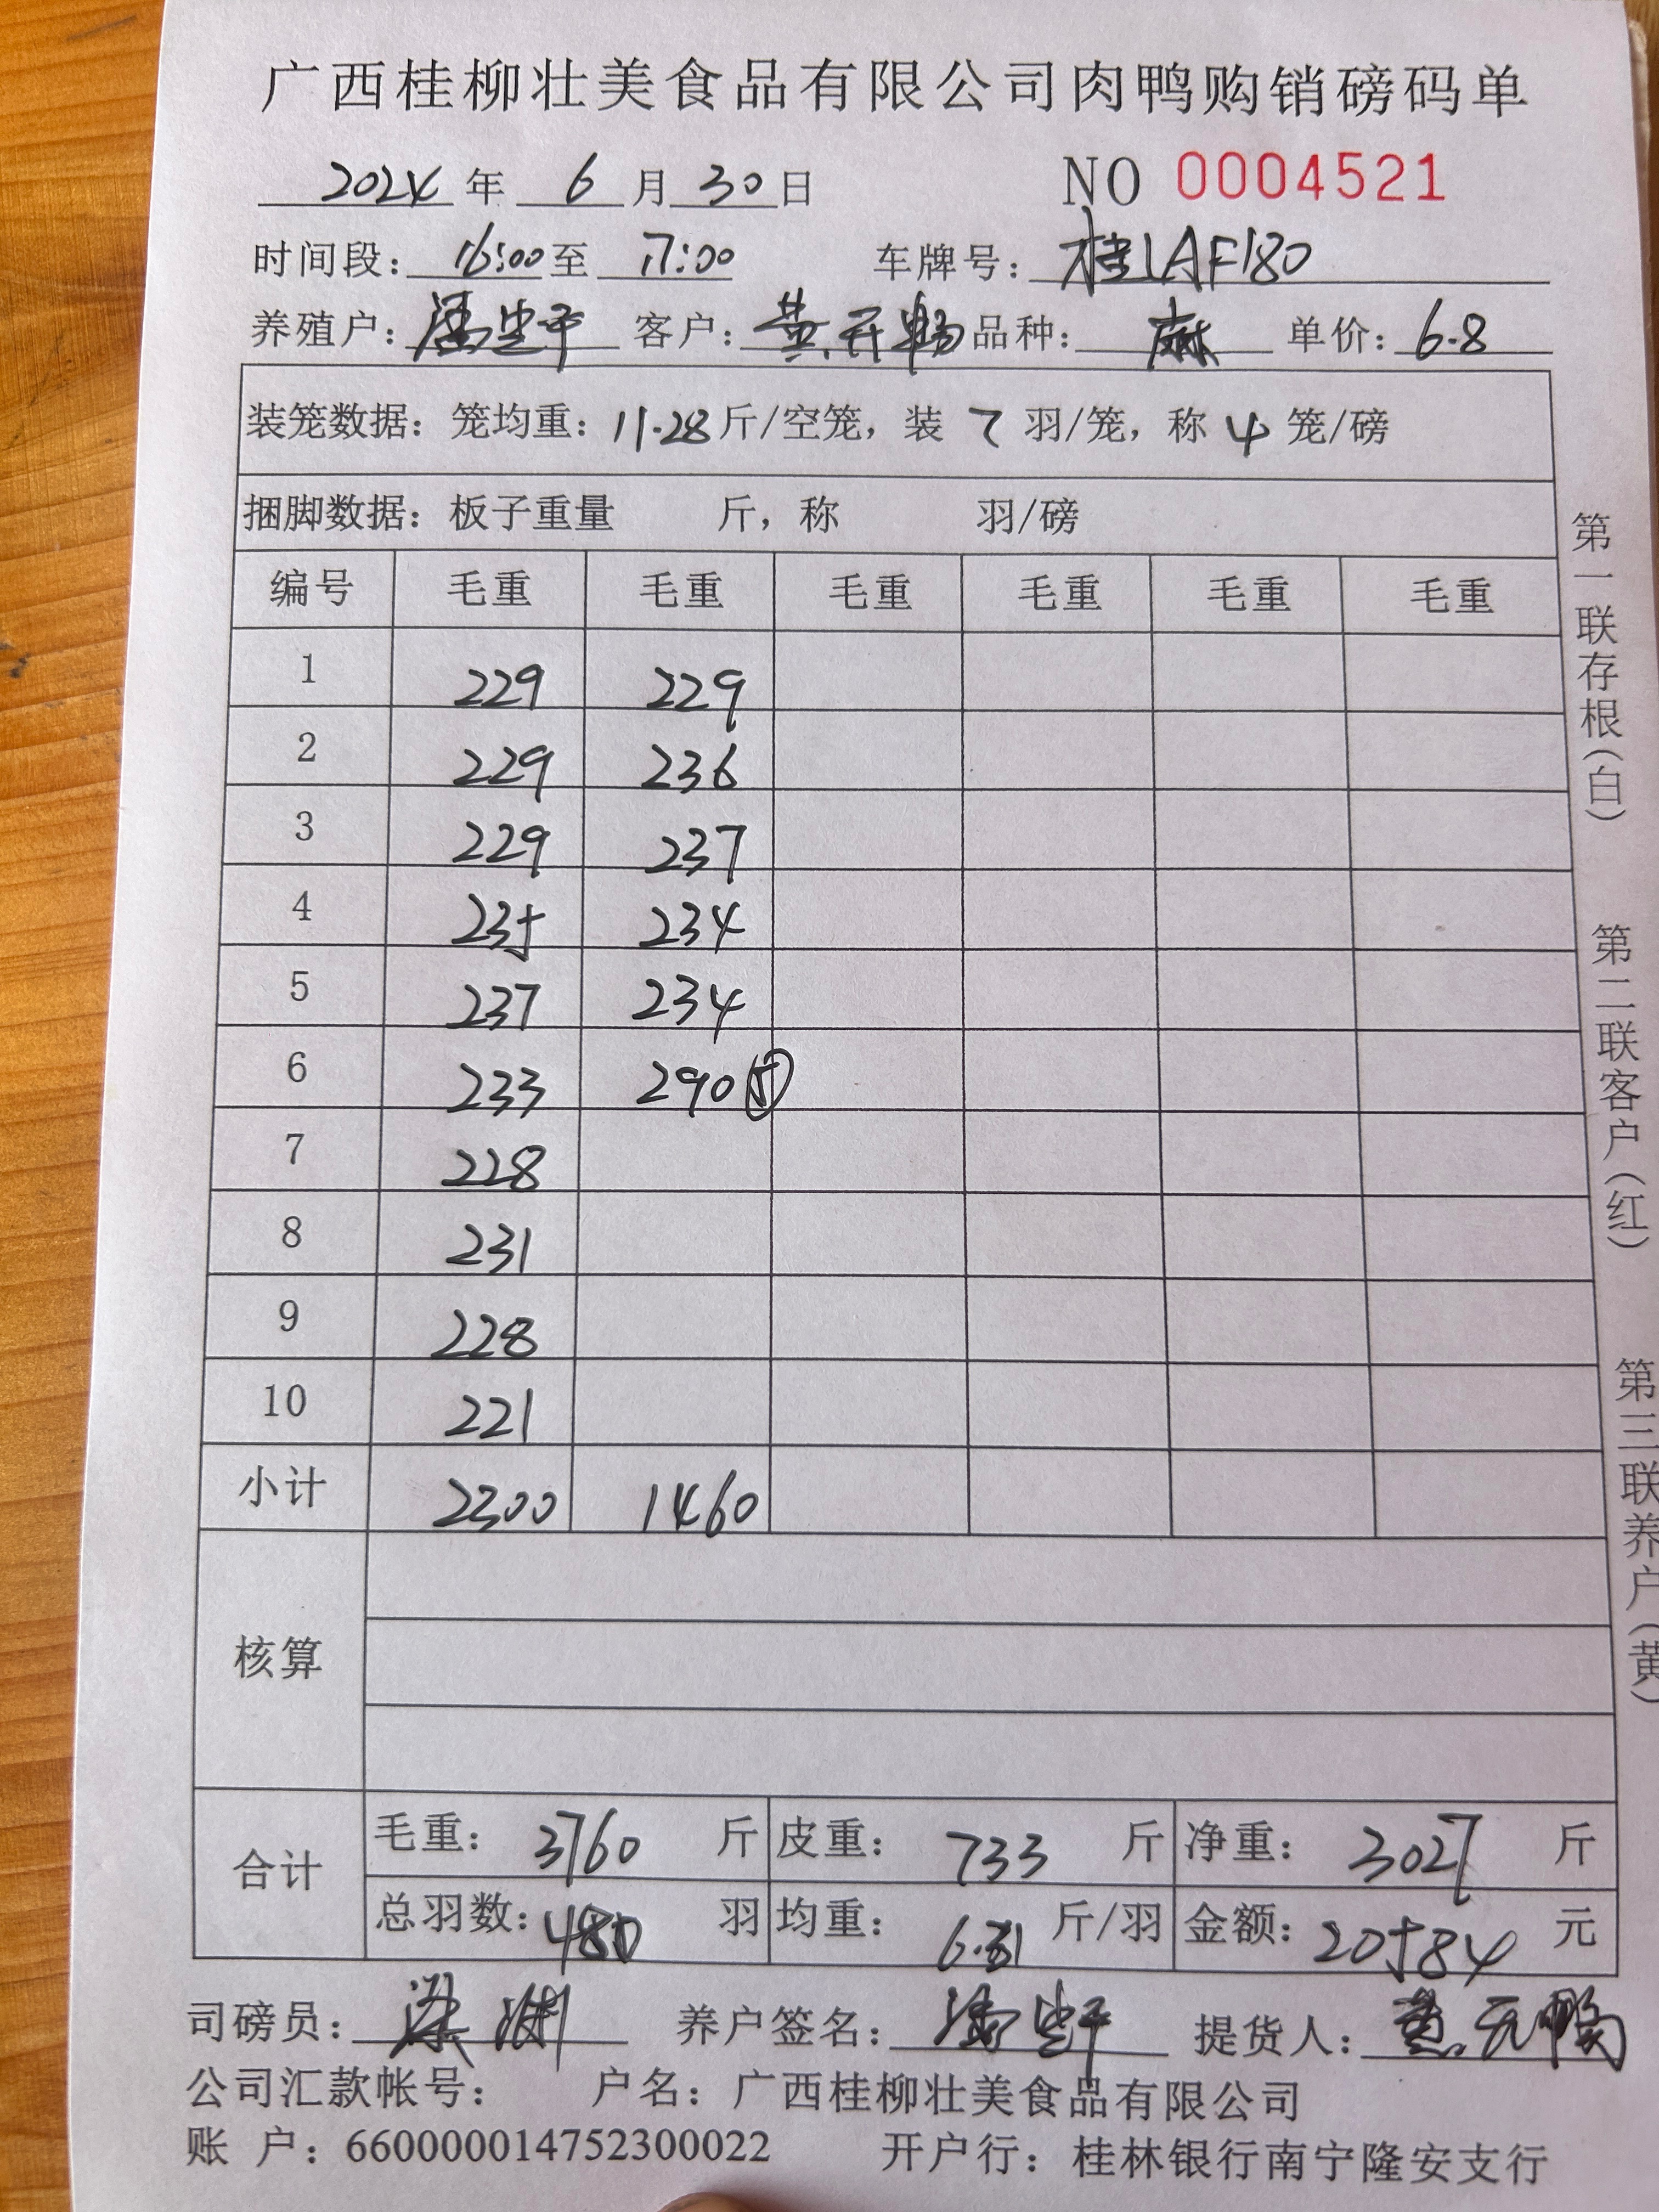 广西桂柳壮美食品有限公司肉鸭购销磅码单
2024 年 6 月 30 日 NO 0004521
时间段: 16:00 至 17:00 车牌号: 桂AF180
养殖户: 客户: 黄 品种: 麻 单价: 6.8
装笼数据: 笼均重: 11.28 斤/空笼, 装 7 羽/笼, 称 4 笼/磅
捆脚数据: 板子重量 斤, 称 羽/磅
编号 毛重 毛重 毛重 毛重 毛重 毛重
1 229 229
2 229 236
3 229 237
4 235 234
5 237 234
6 233 290 ⑤
7 228
8 231
9 228
10 221
小计 2300 1460
核算
合计 毛重: 3760 斤 皮重: 733 斤 净重: 3027 斤
总羽数: 480 羽 均重: 6.31 斤/羽 金额: 20584 元
司磅员: 梁 养户签名: 提货人: 黄
公司汇款帐号: 户名: 广西桂柳壮美食品有限公司
账 户: 660000014752300022 开户行: 桂林银行南宁隆安支行
第一联存根(白)
第二联客户(红)
第三联养户(黄)